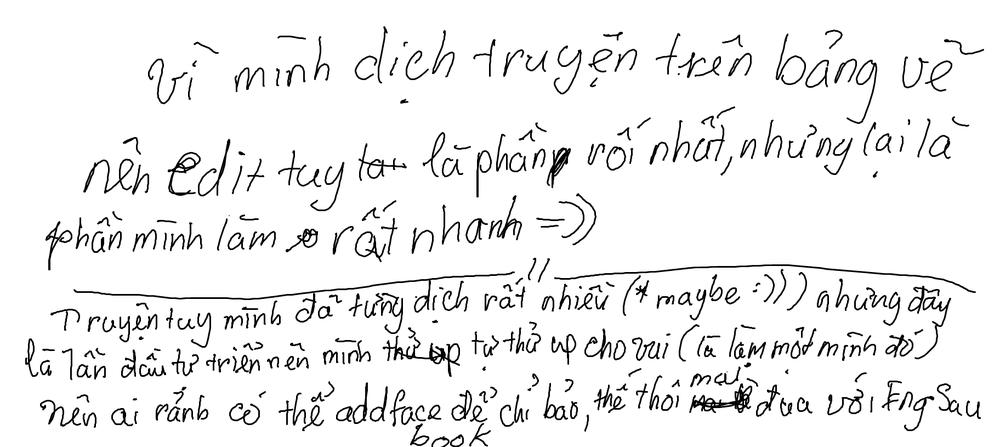 Vì mình dịch truyện trên bảng vẽ
nên edit tuy là phần rối nhất, nhưng lại là
phần mình làm rất nhanh =))
Truyện tuy mình đã từng dịch rất nhiều (*maybe :))) nhưng đây
là lần đầu tự triển nên mình tự thử up cho vui (là làm một mình đó)
nên ai rảnh có thể add facebook để chỉ bảo, thế thôi mai đua với Eng Sau